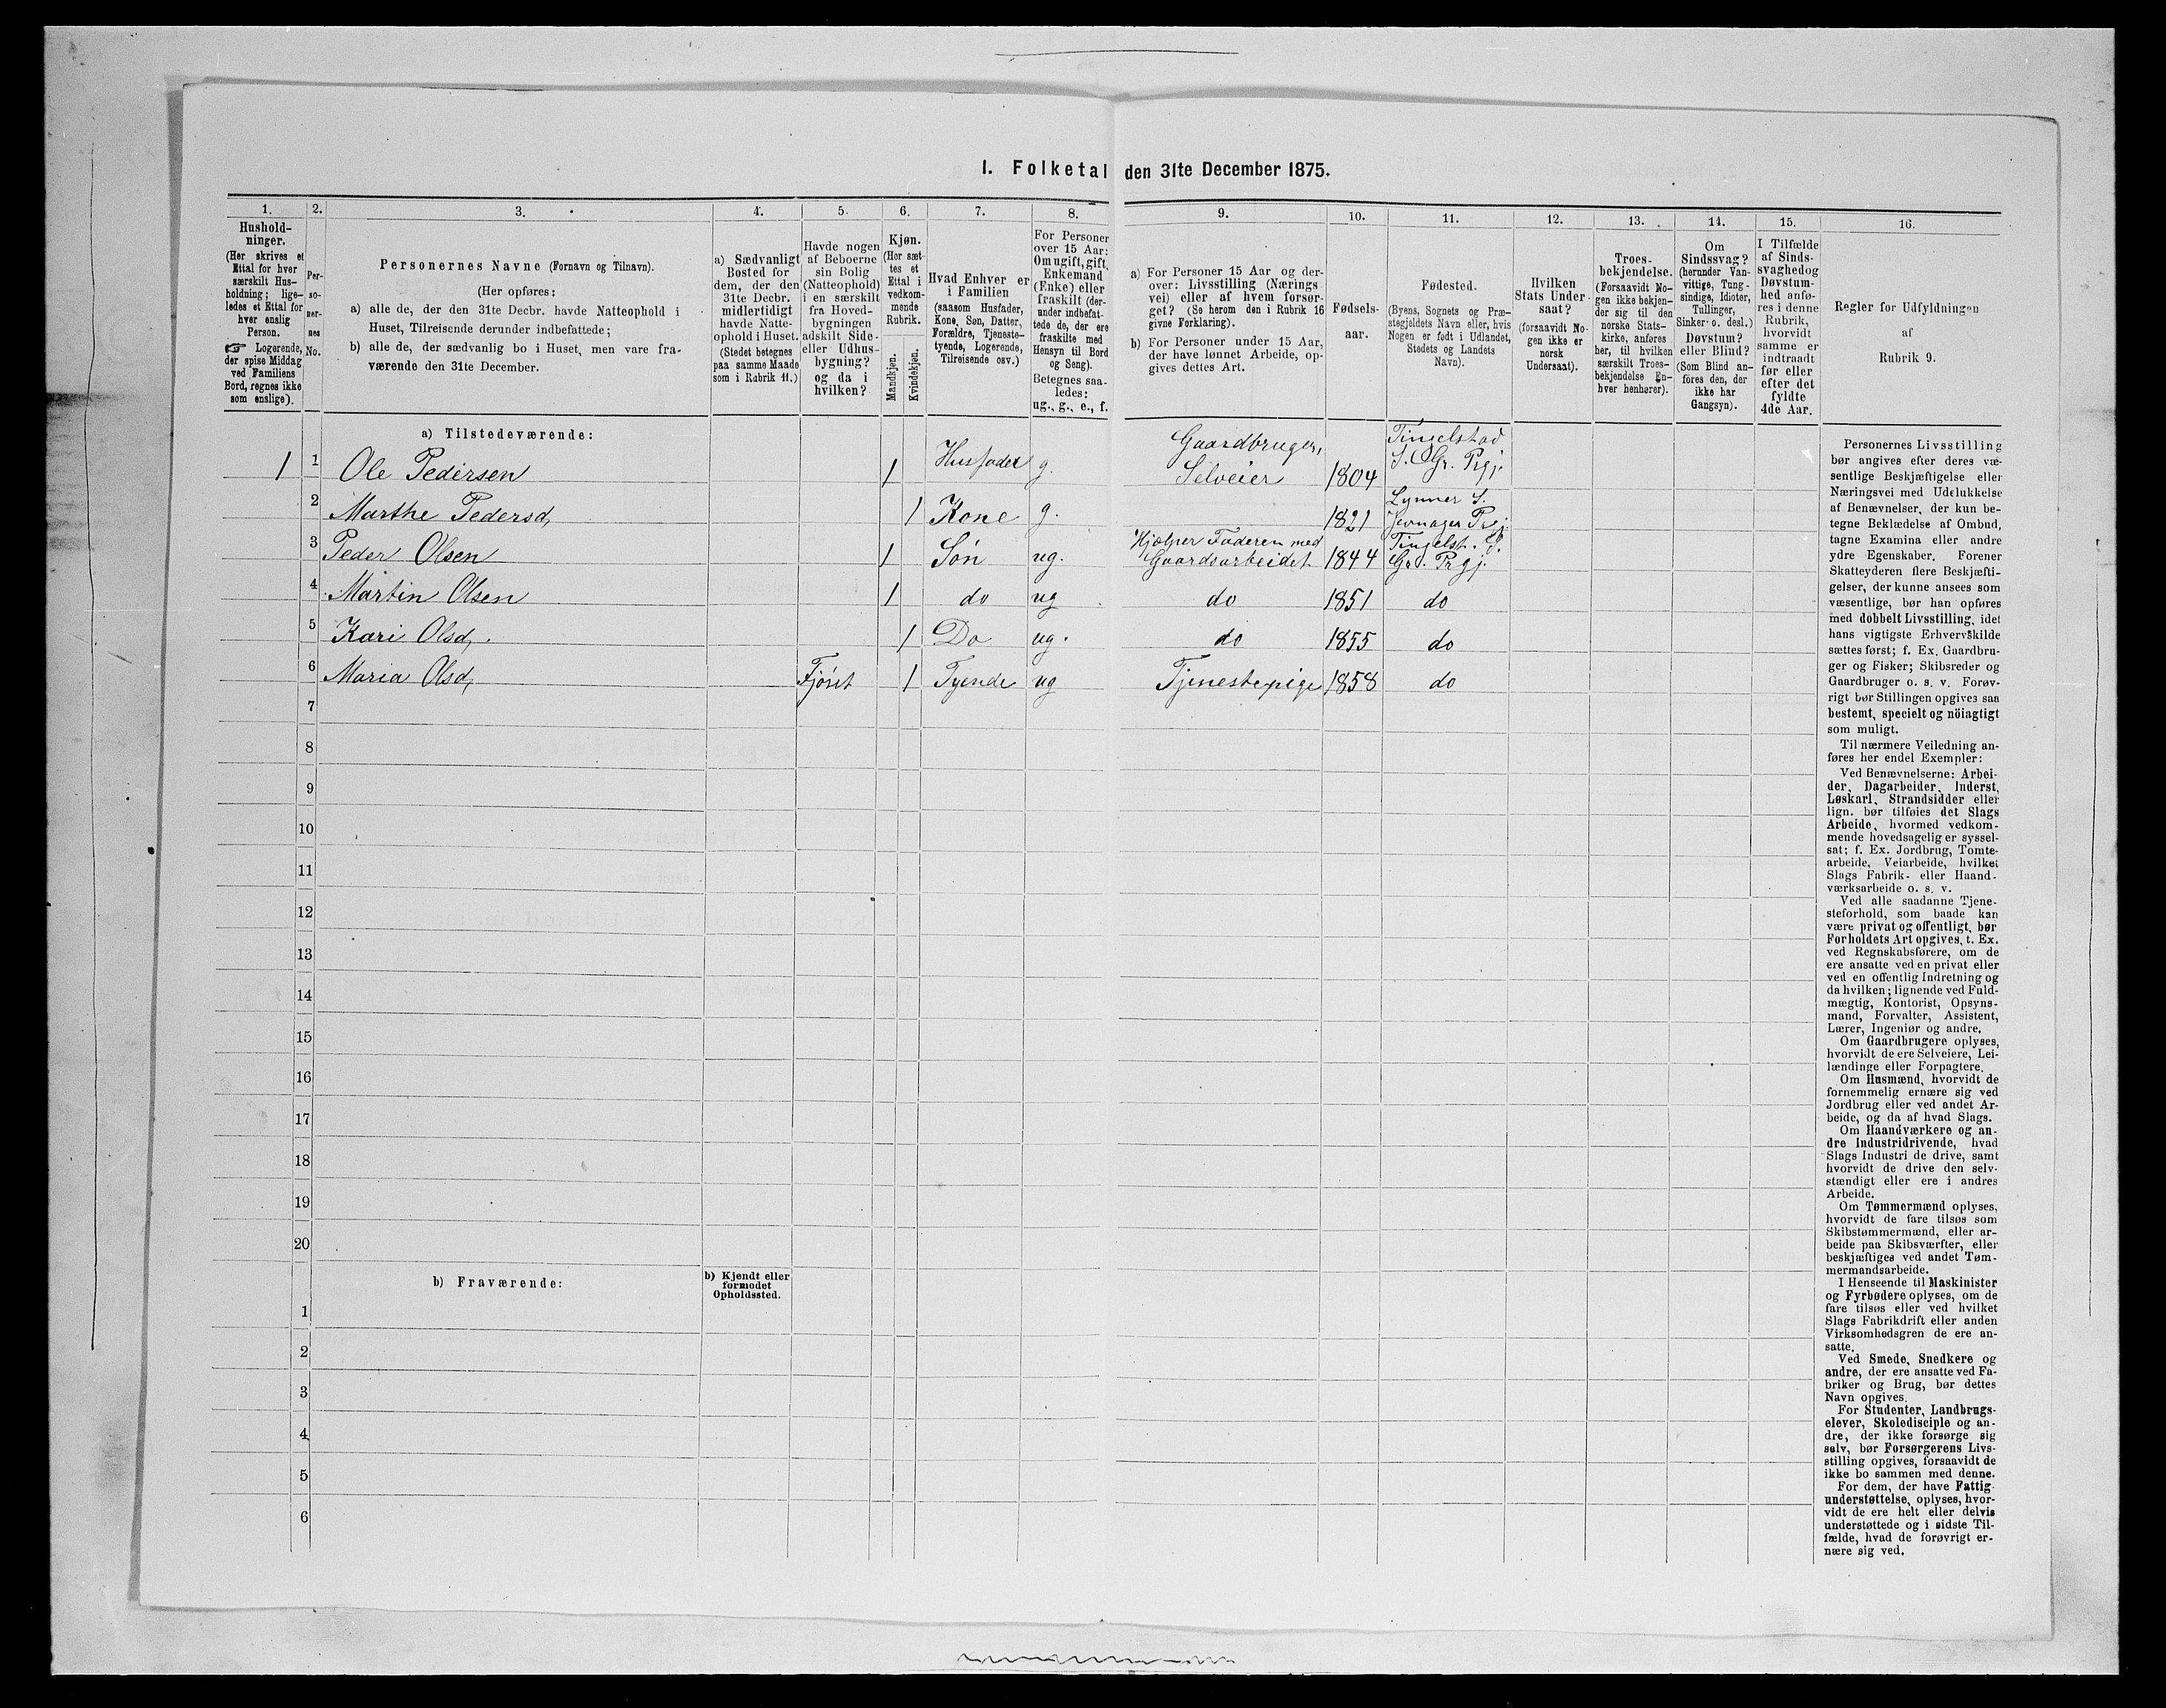 I. Folketal den 31te December 1875.
1.
Hushold-
ninger.
(Her skrives et
Ettal for hver
særskilt Hus-
holdning; lige-
ledes et Ettal for
hver enslig
Person.
☞ Logerende,
der spise Middag
ved Familiens
Bord, regnes ikke
som enslige).
2.
Per-
so-
ner-
nes
No.
3.
Personernes Navne (Fornavn og Tilnavn).
(Her opføres:
a) alle de, der den 31te Decbr. havde Natteophold i
Huset, Tilreisende derunder indbefattede;
b) alle de, der sædvanlig bo i Huset, men vare fra-
værende den 31te December.
4.
a) Sædvanligt
Bosted for
dem, der den
31te Decbr.
midlertidigt
havde Natte-
ophold i Huset.
(Stedet betegnes
paa samme Maade
som i Rubrik 11.)
5.
Havde nogen
af Beboerne
sin Bolig
(Natteophold)
i en særskilt
fra Hoved-
bygningen
adskilt Side-
eller Udhus-
bygning?
og da i
hvilken?
6.
Kjøn.
(Her sæt-
tes et
Ettal i
vedkom-
mende
Rubrik.
Mandkjøn.
Kvindekjøn.
7.
Hvad Enhver er
i Familien
(saasom Husfader,
Kone, Søn, Datter,
Forældre, Tjeneste-
tyende, Logerende,
Tilreisende osv.)
8.
For Personer
over 15 Aar:
Om ugift, gift,
Enkemand
(Enke) eller
fraskilt (der-
under indbefat-
tede de, der ere
fraskilte med
Hensyn til Bord
og Seng).
Betegnes saa-
ledes:
ug., g., e., f.
9.
a) For Personer 15 Aar og der-
over: Livsstilling (Nærings
vei) eller af hvem forsør-
get? (Se herom den i Rubrik 16
givne Forklaring).
b) For Personer under 15 Aar,
der have lønnet Arbeide, op-
gives dettes Art.
10.
Fødsels-
aar.
11.
Fødested.
(Byens, Sognets og Præ-
stegjeldets Navn eller, hvis
Nogen er født i Udlandet,
Stedets og Landets
Navn).
12.
Hvilken
Stats Under-
saat?
(forsaavidt No-
gen ikke er
norsk
Undersaat).
13.
Troes-
bekjendelse.
(Forsaavidt No-
gen ikke bekjen-
der sig til den
norske Stats-
kirke, anføres
her, til hvilken
særskilt Troes-
bekjendelse En-
hver henhører).
14.
Om
Sindssvag?
(herunder Van-
vittige, Tung-
sindige, Idioter,
Tullinger,
Sinker o. desl.)
Døvstum?
eller Blind?
(Som Blind an-
føres den, der
ikke har
Gangsyn).
15.
I Tilfælde
af Sinds-
svaghed og
Døvstum-
hed anfø-
res i denne
Rubrik,
hvorvidt
samme er
indtraadt
før eller
efter det
fyldte
4de Aar.
16.
Regler for Udfyldningen
af
Rubrik 9.
a) Tilstedeværende:
1 1 Ole Pedersen 1 Husfader g. Gaardbruger, Selveier 1804 Tingelstad S. Gr. Prgj.
2 Marthe Pedersd, 1 Kone g. 1821 Lynner S. Jevnager Prgj.
3 Peder Olsen 1 Søn ug. Hjælper Faderen med Gaardsarbeidet 1844 Tingelst. S. Gr. Prgj.
4 Martin Olsen 1 do ug do 1851 do
5 Kari Olsd, 1 Do ug. do 1855 do
6 Maria Olsd, Fjöset 1 Tyende ug Tjenestepige 1858 do
7
8
9
10
11
12
13
14
15
16
17
18
19
20
b) Fraværende:
b) Kjendt eller
formodet
Opholdssted.
1
2
3
4
5
6
Personernes Livsstilling
bør angives efter deres væ-
sentlige Beskjæftigelse eller
Næringsvei med Udelukkelse
af Benævnelser, der kun be-
tegne Beklædelse af Ombud,
tagne Examina eller andre
ydre Egenskaber. Forener
Skatteyderen flere Beskjæfti-
gelser, der kunne ansees som
væsentlige, bør han opføres
med dobbelt Livsstilling, idet
hans vigtigste Erhvervskilde
sættes først; f. Ex. Gaardbru-
ger og Fisker; Skibsreder og
Gaardbruger o. s. v. Forøv-
rigt bør Stillingen opgives saa
bestemt, specielt og nöiagtigt
som muligt.
Til nærmere Veiledning an-
føres her endel Exempler:
Ved Benævnelserne: Arbei-
der, Dagarbeider, Inderst,
Løskarl, Strandsidder eller
lign. bør tilføies det Slags
Arbeide, hvormed vedkom-
mende hovedsagelig er syssel-
sat; f. Ex. Jordbrug, Tomte-
arbeide, Veiarbeide, hvilket
Slags Fabrik- eller Haand-
værksarbeide o. s. v.
Ved alle saadanne Tjene-
steforhold, som baade kan
være privat og offentligt, bør
Forholdets Art opgives, t. Ex.
ved Regnskabsførere, om de
ere ansatte ved en privat eller
ved en offentlig Indretning og
da hvilken; lignende ved Fuld-
mægtig, Kontorist, Opsyns-
mand, Forvalter, Assistent,
Lærer, Ingeniør og andre.
Om Gaardbrugere oplyses,
hvorvidt de ere Selveiere, Lei-
lændinge eller Forpagtere.
Om Husmænd, hvorvidt de
fornemmelig ernære sig ved
Jordbrug eller ved andet Ar-
beide, og da af hvad Slags.
Om Haandværkere og an-
dre Industridrivende, hvad
Slags Industri de drive, samt
hvorvidt de drive den selv-
stændigt eller ere i andres
Arbeide.
Om Tømmermænd oplyses,
hvorvidt de fare tilsøs som
Skibstømmermænd, eller ar-
beide paa Skibsværfter, eller
beskjæftiges ved andet Tøm-
mermandsarbeide.
I Henseende til Maskinister
og Fyrbødere oplyses, om de
fare tilsøs eller ved hvilket
Slags Fabrikdrift eller anden
Virksomhedsgren de ere an-
satte.
Ved Smede, Snedkere og
andre, der ere ansatte ved Fa-
briker og Brug, bør dettes
Navn opgives.
For Studenter, Landbrugs-
elever, Skoledisciple og an-
dre, der ikke forsørge sig
selv, bør Forsørgerens Livs-
stilling opgives, forsaavidt de
ikke bo sammen med denne.
For dem, der have Fattig-
understøttelse, oplyses, hvor-
vidt de ere helt eller delvis
understøttede og i sidste Til-
fælde, hvad de forøvrigt er-
nære sig ved.